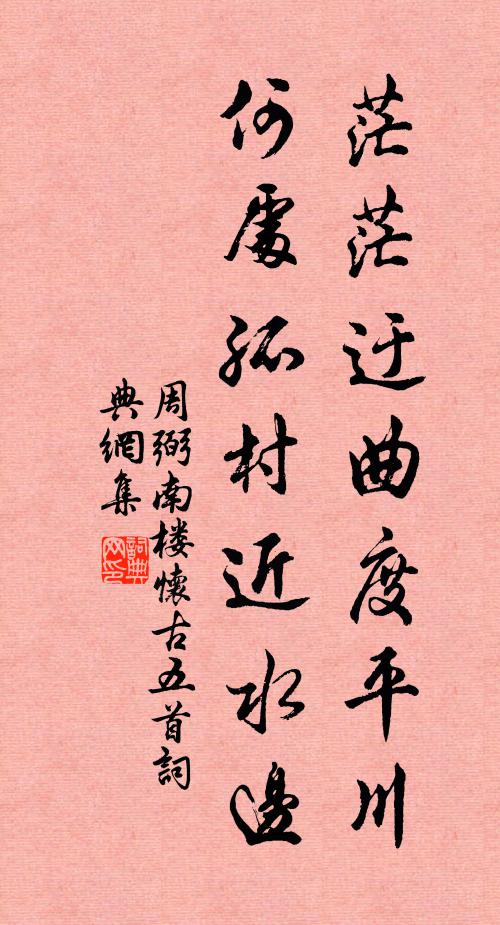 茫茫迂曲度平川
何處孤村近水邊
周弼南楼懷古五首詞
典網集
詞典
网印